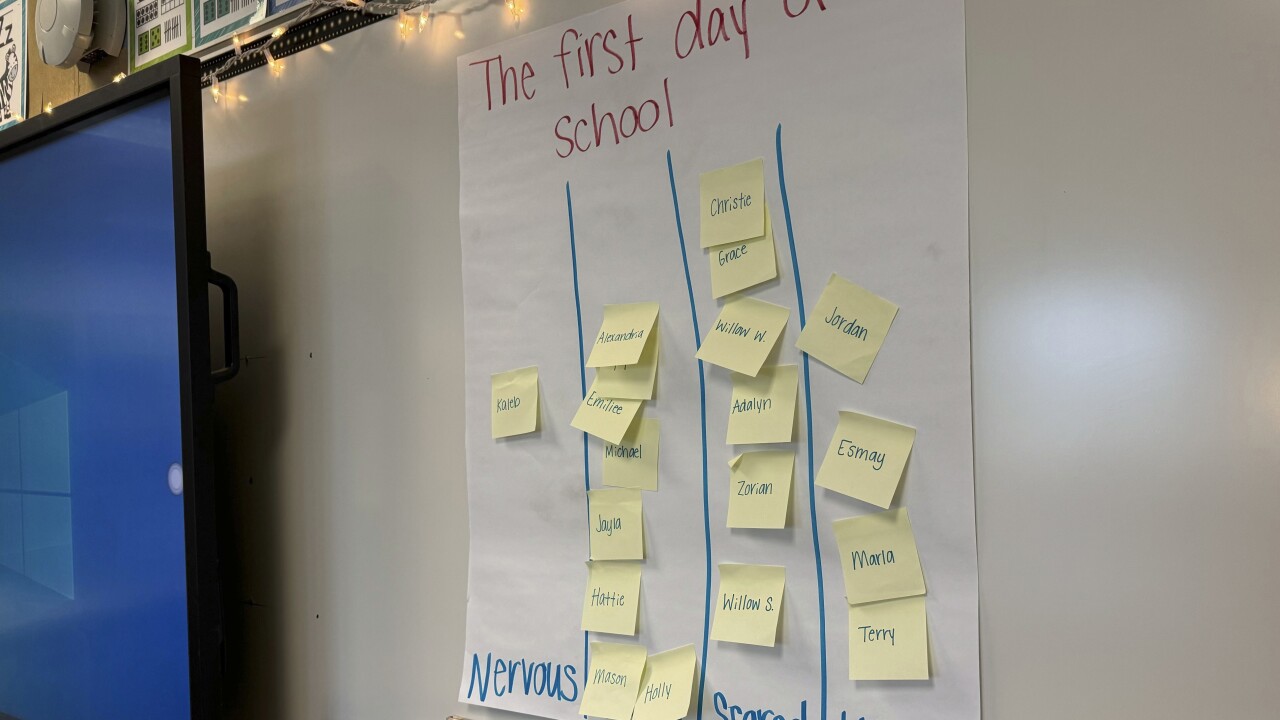 The first day of
school
Christie
Grace
Alexandria
Willow W.
Jordan
Kaleb
Emiliee
Adalyn
Michael
Esmay
Zorian
Jayla
Marla
Hattie
Willow S.
Terry
Nervous
Mason
Holly
Scared